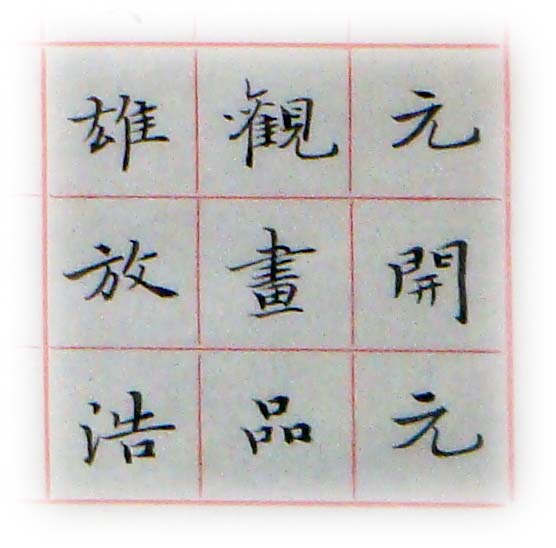 元開元
觀畫品
雄放浩